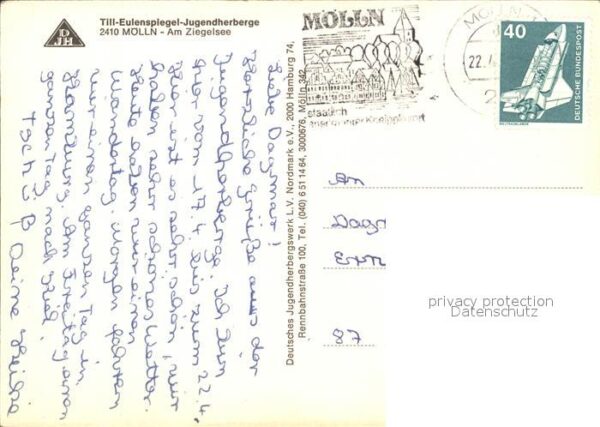 Till-Eulenspiegel-Jugendherberge
2410 MÖLLN - Am Ziegelsee
DJH
Liebe Dagmar!
Herzliche Grüße aus der
Jugendherberge. Ich bin
hier vom 17.4. bis zum 22.4.
Hier ist es sehr schön, wir
haben sehr schönes Wetter.
Heute haben wir einen
Wandertag. Morgen fahren
wir einen ganzen Tag in
Hamburg. Am Freitag einen
ganzen Tag nach Kiel.
Tschüß Deine Heike
Deutsches Jugendherbergswerk L.V. Nordmark e.V., 2000 Hamburg 74,
Rennbahnstraße 100, Tel. (040) 6 51 14 64, 3000676, Mölln 342
MÖLLN
staatlich
MÖLLN
22.
2
40
DEUTSCHE BUNDESPOST
WELTRAUMLABOR
An
Dagm
87
privacy protection
Datenschutz